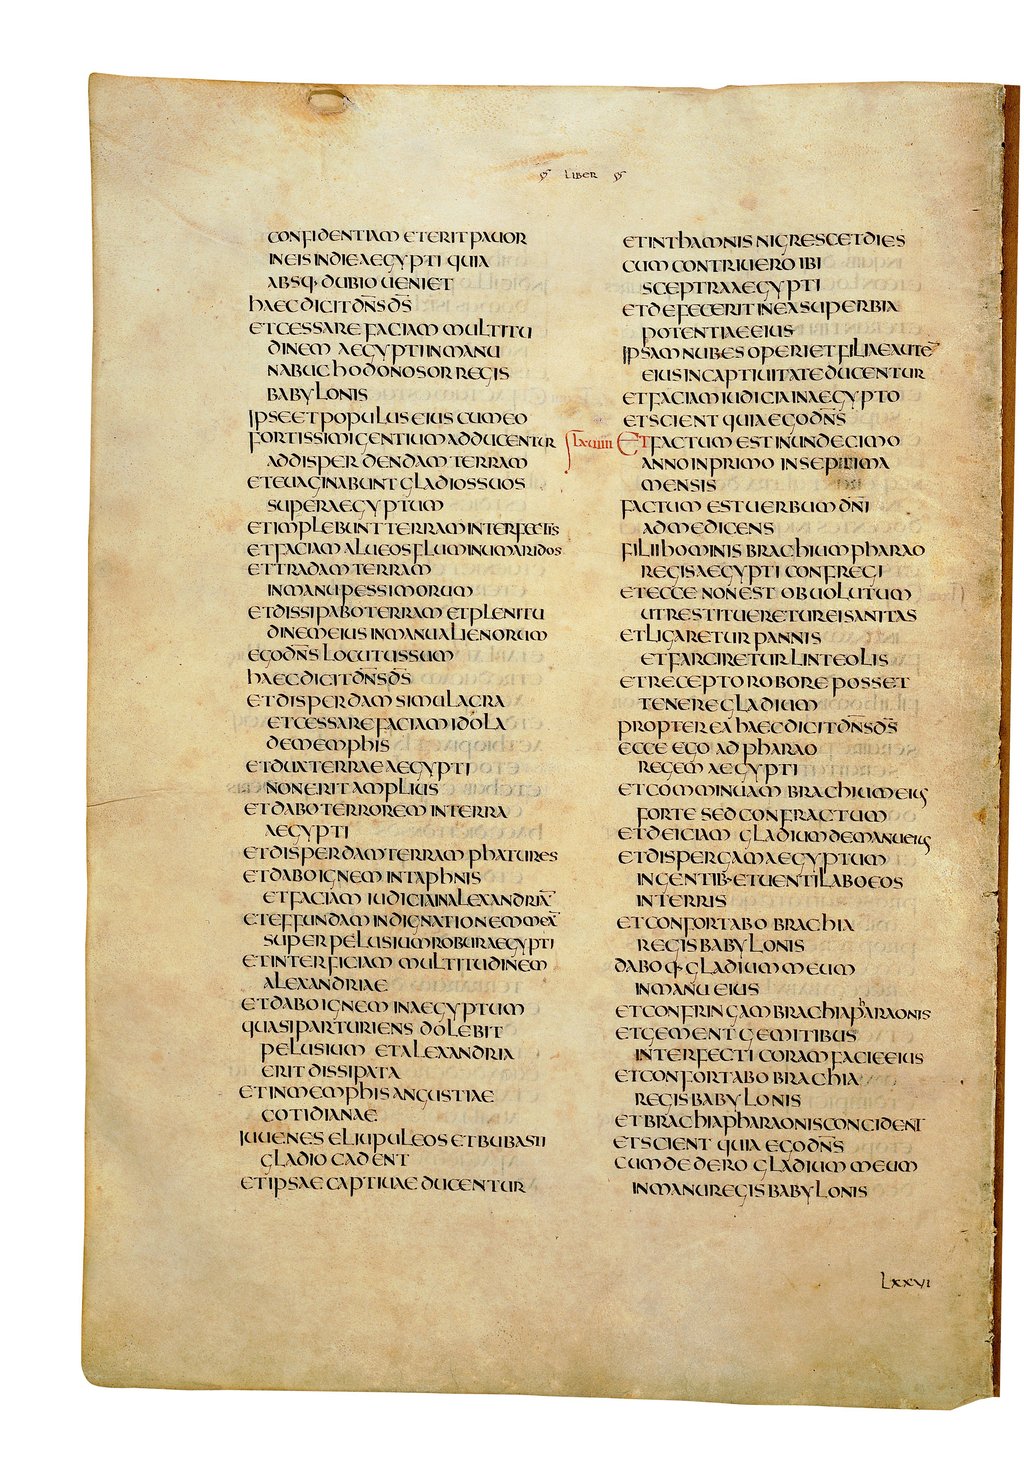 LIBER
CONFIDENTIAM ET ERIT PAUOR
IN EIS IN DIE AEGYPTI QUIA
ABSQ· DUBIO UENIET
HAEC DICIT DN̄S D̄S
ET CESSARE FACIAM MULTITU
DINEM AEGYPTI IN MANU
NABUCHODONOSOR REGIS
BABYLONIS
IPSE ET POPULUS EIUS CUM EO
FORTISSIMI GENTIUM ADDUCENTUR
AD DISPERDENDAM TERRAM
ET EUAGINABUNT GLADIOS SUOS
SUPER AEGYPTUM
ET IMPLEBUNT TERRAM INTERFECTIS
ET FACIAM ALUEOS FLUMINUM ARIDOS
ET TRADAM TERRAM
IN MANU PESSIMORUM
ET DISSIPABO TERRAM ET PLENITU
DINEM EIUS IN MANU ALIENORUM
EGO DN̄S LOCUTUS SUM
HAEC DICIT DN̄S D̄S
ET DISPERDAM SIMULACRA
ET CESSARE FACIAM IDOLA
DE MEMPHIS
ET DUX TERRAE AEGYPTI
NON ERIT AMPLIUS
ET DABO TERROREM IN TERRA
AEGYPTI
ET DISPERDAM TERRAM PHATURES
ET DABO IGNEM IN TAPHNIS
ET FACIAM IUDICIA IN ALEXANDRIA
ET EFFUNDAM INDIGNATIONEM MEĀ
SUPER PELUSIUM ROBUR AEGYPTI
ET INTERFICIAM MULTITUDINEM
ALEXANDRIAE
ET DABO IGNEM IN AEGYPTUM
QUASI PARTURIENS DOLEBIT
PELUSIUM ET ALEXANDRIA
ERIT DISSIPATA
ET IN MEMPHIS ANGUSTIAE
COTIDIANAE
IUUENES ELIUPULEOS ET BUBASTI
GLADIO CADENT
ET IPSAE CAPTIUAE DUCENTUR
ET IN THAMNIS NIGRESCET DIES
CUM CONTRIUERO IBI
SCEPTRA AEGYPTI
ET DEFECERIT IN EA SUPERBIA
POTENTIAE EIUS
IPSAM NUBES OPERIET FILIAE AUTĒ
EIUS IN CAPTIUITATE DUCENTUR
ET FACIAM IUDICIA IN AEGYPTO
ET SCIENT QUIA EGO DN̄S
LXVIIII ET FACTUM EST IN UNDECIMO
ANNO IN PRIMO IN SEPTIMA
MENSIS
FACTUM EST UERBUM DN̄I
AD ME DICENS
FILII HOMINIS BRACHIUM PHARAO
REGIS AEGYPTI CONFREGI
ET ECCE NON EST OBUOLUTUM
UT RESTITUERETUR EI SANITAS
ET LIGARETUR PANNIS
ET FARCIRETUR LINTEOLIS
ET RECEPTO ROBORE POSSET
TENERE GLADIUM
PROPTEREA HAEC DICIT DN̄S D̄S
ECCE EGO AD PHARAO
REGEM AEGYPTI
ET COMMINUAM BRACHIUM EIUS
FORTE SED CONFRACTUM
ET DEICIAM GLADIUM DE MANU EIUS
ET DISPERGAM AEGYPTUM
IN GENTIB· ET UENTILABO EOS
IN TERRIS
ET CONFORTABO BRACHIA
REGIS BABYLONIS
DABOQ· GLADIUM MEUM
IN MANU EIUS
ET CONFRINGAM BRACHIA PHARAONIS
ET GEMENT GEMITIBUS
INTERFECTI CORAM FACIE EIUS
ET CONFORTABO BRACHIA
REGIS BABYLONIS
ET BRACHIA PHARAONIS CONCIDENT
ET SCIENT QUIA EGO DN̄S
CUM DEDERO GLADIUM MEUM
IN MANU REGIS BABYLONIS
LXXVI